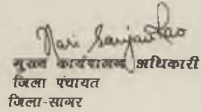 मुख्य कार्यपालन अधिकारी
जिला पंचायत
जिला-सागर